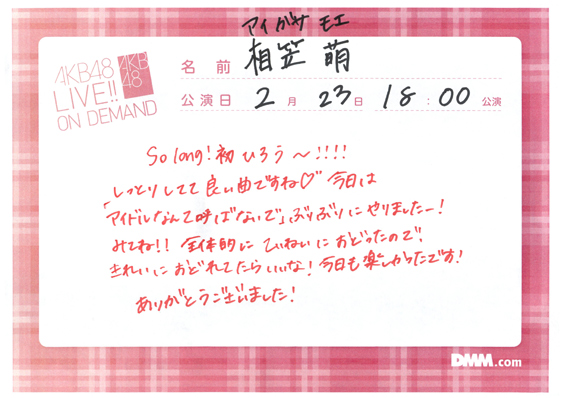 AKB48
LIVE!!
ON DEMAND
AKB
48
アイガサ モエ
名前 相笠 萌
公演日 2月 23日 18:00 公演
So long! 初ひろう〜!!!!
しっとりしてて良い曲ですね♡ 今日は
「アイドルなんて呼ばないで」ぶりぶりにやりましたー!
みてね!! 全体的に ていねいに おどったので、
きれいに おどれてたらいいな! 今日も楽しかったです!
ありがとうございました!
DMM.com